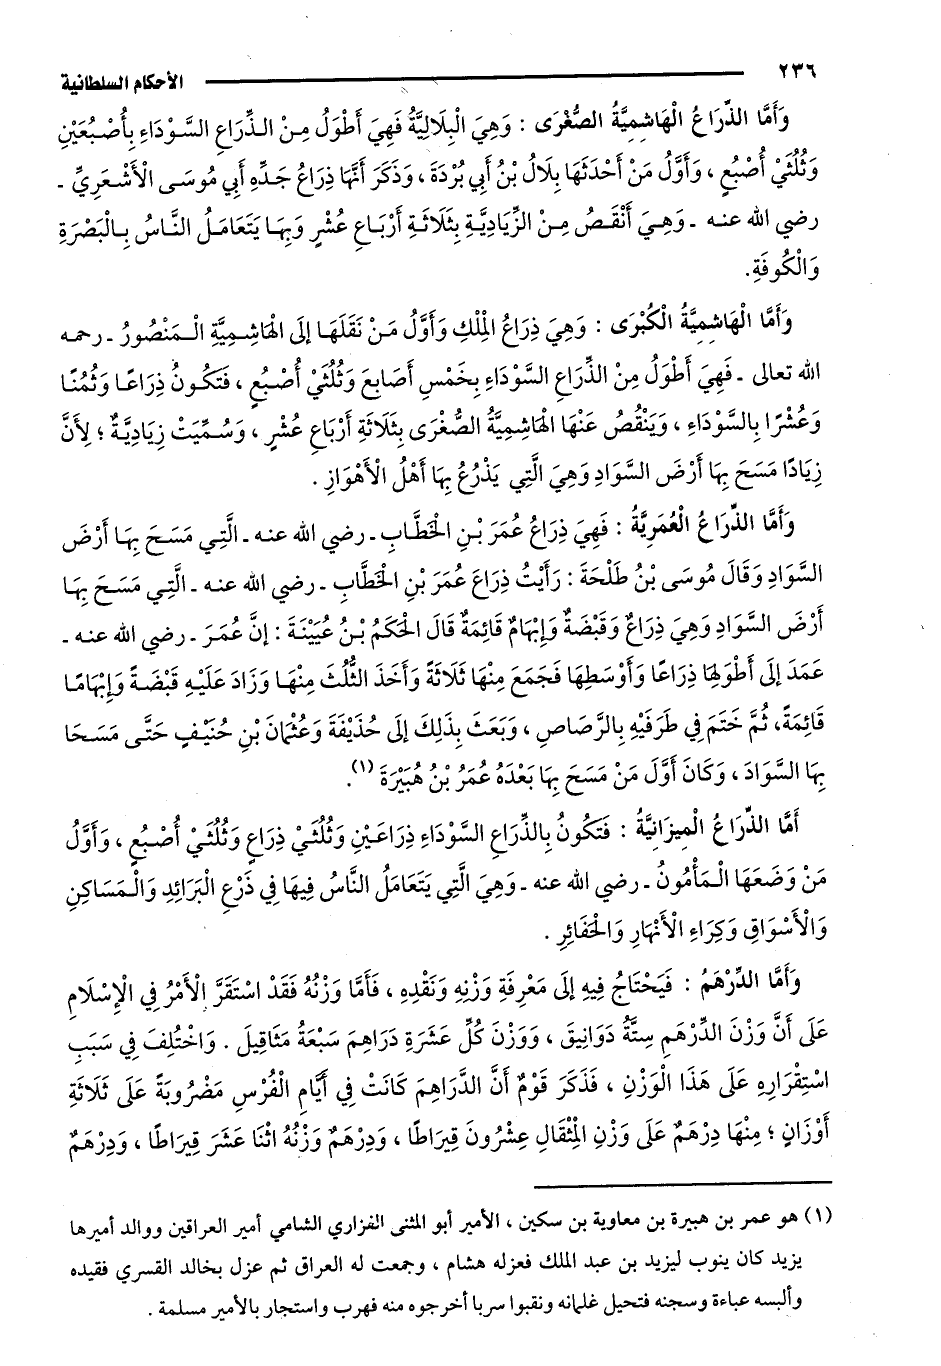 ٢٣٦ الأحكام السلطانية
وَأَمَّا الذِّرَاعُ الْهَاشِمِيَّةُ الصُّغْرَى : وَهِيَ الْبِلَالِيَّةُ فَهِيَ أَطْوَلُ مِنْ الذِّرَاعِ السَّوْدَاءِ بِأُصْبُعَيْنِ
وَثُلُثَيْ أُصْبُعٍ ، وَأَوَّلُ مَنْ أَحْدَثَهَا بِلَالُ بْنُ أَبِي بُرْدَةَ ، وَذَكَرَ أَنَّهَا ذِرَاعُ جَدِّهِ أَبِي مُوسَى الْأَشْعَرِيِّ ـ
رضي الله عنه ـ وَهِيَ أَنْقَصُ مِنْ الزِّيَادِيَّةِ بِثَلَاثَةِ أَرْبَاعِ عُشْرٍ وَبِهَا يَتَعَامَلُ النَّاسُ بِالْبَصْرَةِ
وَالْكُوفَةِ.
وَأَمَّا الْهَاشِمِيَّةُ الْكُبْرَى : وَهِيَ ذِرَاعُ الْمَلِكِ وَأَوَّلُ مَنْ نَقَلَهَا إلَى الْهَاشِمِيَّةِ الْمَنْصُورُ ـ رحمه
الله تعالى ـ فَهِيَ أَطْوَلُ مِنْ الذِّرَاعِ السَّوْدَاءِ بِخَمْسِ أَصَابِعَ وَثُلُثَيْ أُصْبُعٍ ، فَتَكُونُ ذِرَاعًا وَثُمُنًا
وَعُشْرًا بِالسَّوْدَاءِ ، وَيَنْقُصُ عَنْهَا الْهَاشِمِيَّةُ الصُّغْرَى بِثَلَاثَةِ أَرْبَاعِ عُشْرٍ ، وَسُمِّيَتْ زِيَادِيَّةً ؛ لِأَنَّ
زِيَادًا مَسَحَ بِهَا أَرْضَ السَّوَادِ وَهِيَ الَّتِي يَذْرُعُ بِهَا أَهْلُ الْأَهْوَازِ .
وَأَمَّا الذِّرَاعُ الْعُمَرِيَّةُ : فَهِيَ ذِرَاعُ عُمَرَ بْنِ الْخَطَّابِ ـ رضي الله عنه ـ الَّتِي مَسَحَ بِهَا أَرْضَ
السَّوَادِ وَقَالَ مُوسَى بْنُ طَلْحَةَ : رَأَيْتُ ذِرَاعَ عُمَرَ بْنِ الْخَطَّابِ ـ رضي الله عنه ـ الَّتِي مَسَحَ بِهَا
أَرْضَ السَّوَادِ وَهِيَ ذِرَاعٌ وَقَبْضَةٌ وَإِبْهَامٌ قَائِمَةٌ قَالَ الْحَكَمُ بْنُ عُيَيْنَةَ : إنَّ عُمَرَ ـ رضي الله عنه ـ
عَمَدَ إلَى أَطْوَلِهَا ذِرَاعًا وَأَوْسَطِهَا فَجَمَعَ مِنْهَا ثَلَاثَةً وَأَخَذَ الثُّلُثَ مِنْهَا وَزَادَ عَلَيْهِ قَبْضَةً وَإِبْهَامًا
قَائِمَةً، ثُمَّ خَتَمَ فِي طَرَفَيْهِ بِالرَّصَاصِ ، وَبَعَثَ بِذَلِكَ إلَى حُذَيْفَةَ وَعُثْمَانَ بْنِ حُنَيْفٍ حَتَّى مَسَحَا
بِهَا السَّوَادَ ، وَكَانَ أَوَّلَ مَنْ مَسَحَ بِهَا بَعْدَهُ عُمَرُ بْنُ هُبَيْرَةَ (١).
أَمَّا الذِّرَاعُ الْمِيزَانِيَّةُ : فَتَكُونُ بِالذِّرَاعِ السَّوْدَاءِ ذِرَاعَيْنِ وَثُلُثَيْ ذِرَاعٍ وَثُلُثَيْ أُصْبُعٍ ، وَأَوَّلُ
مَنْ وَضَعَهَا الْمَأْمُونُ ـ رضي الله عنه ـ وَهِيَ الَّتِي يَتَعَامَلُ النَّاسُ فِيهَا فِي ذَرْعِ الْبَرَائِدِ وَالْمَسَاكِنِ
وَالْأَسْوَاقِ وَكِرَاءِ الْأَنْهَارِ وَالْحَفَائِرِ .
وَأَمَّا الدِّرْهَمُ : فَيَحْتَاجُ فِيهِ إلَى مَعْرِفَةِ وَزْنِهِ وَنَقْدِهِ ، فَأَمَّا وَزْنُهُ فَقَدْ اسْتَقَرَّ الْأَمْرُ فِي الْإِسْلَامِ
عَلَى أَنَّ وَزْنَ الدِّرْهَمِ سِتَّةُ دَوَانِيقَ ، وَوَزْنَ كُلِّ عَشَرَةِ دَرَاهِمَ سَبْعَةُ مَثَاقِيلَ . وَاخْتُلِفَ فِي سَبَبِ
اسْتِقْرَارِهِ عَلَى هَذَا الْوَزْنِ ، فَذَكَرَ قَوْمٌ أَنَّ الدَّرَاهِمَ كَانَتْ فِي أَيَّامِ الْفُرْسِ مَضْرُوبَةً عَلَى ثَلَاثَةِ
أَوْزَانٍ ؛ مِنْهَا دِرْهَمٌ عَلَى وَزْنِ الْمِثْقَالِ عِشْرُونَ قِيرَاطًا ، وَدِرْهَمٌ وَزْنُهُ اثْنَا عَشَرَ قِيرَاطًا ، وَدِرْهَمٌ
(١) هو عمر بن هبيرة بن معاوية بن سكين ، الأمير أبو المثنى الفزاري الشامي أمير العراقين ووالد أميرها
يزيد كان ينوب ليزيد بن عبد الملك فعزله هشام ، وجمعت له العراق ثم عزل بخالد القسري فقيده
وألبسه عباءة وسجنه فتحيل غلمانه ونقبوا سربا أخرجوه منه فهرب واستجار بالأمير مسلمة .